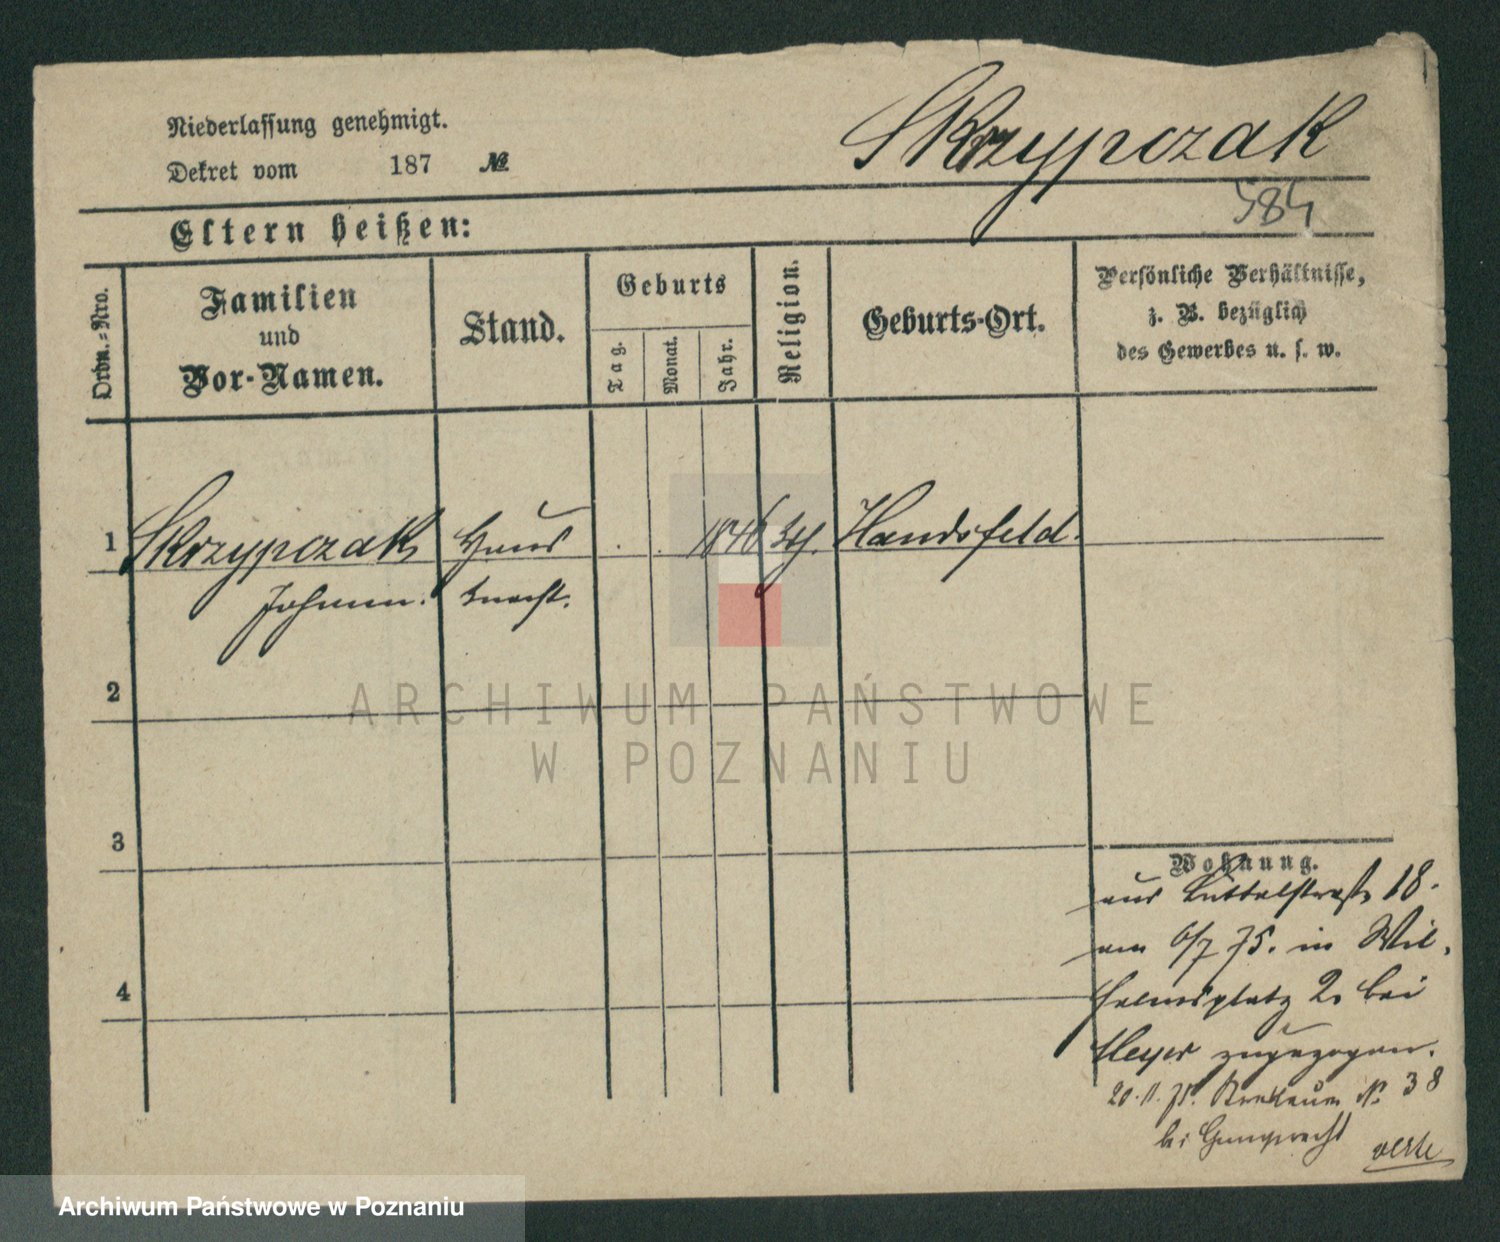 Niederlassung genehmigt.
Dekret vom 187 №
Skrzypczak
584
Eltern heißen:
Ordn.-Nro.
Familien
und
Vor-Namen.
Stand.
Geburts
Tag.
Monat.
Jahr.
Religion.
Geburts-Ort.
Persönliche Verhältnisse,
z. B. bezüglich
des Gewerbes u. s. w.
1 Skrzypczak Haus 1846 Handsfeld.
Johann. knecht.
2
3
4
Wohnung.
aus Büttelstraße 18.
am 6/7 75. in Wil-
helmsplatz 2. bei
Meyer zugezogen.
20.11.75. № 38
bei
ARCHIWUM PAŃSTWOWE
W POZNANIU
Archiwum Państwowe w Poznaniu